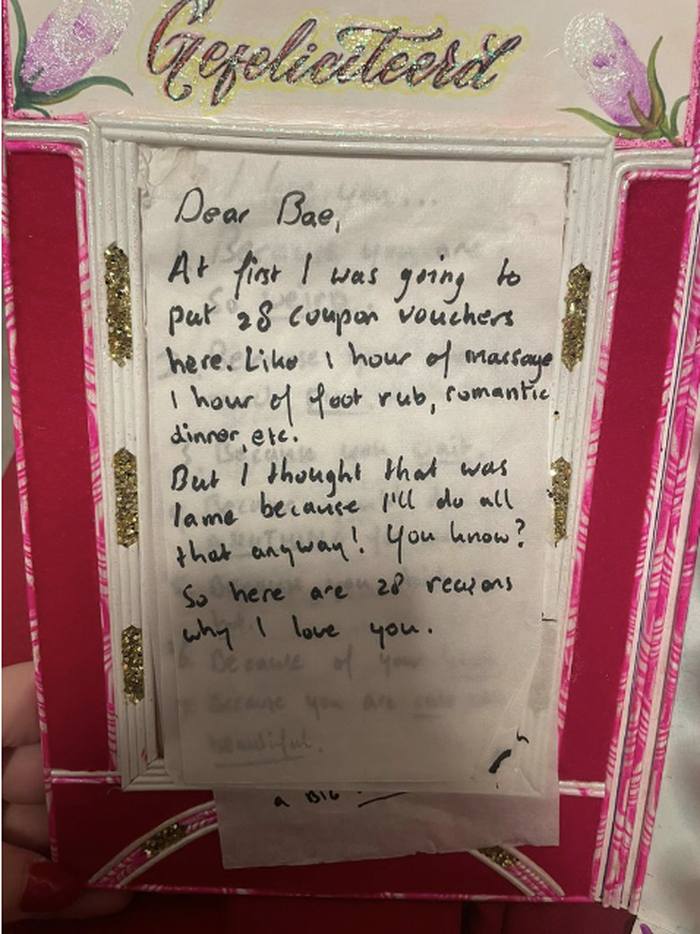 Gefeliciteerd
Dear Bae,
At first I was going to
put 28 coupon vouchers
here. Like 1 hour of massage
1 hour of foot rub, romantic
dinner, etc.
But I thought that was
lame because I'll do all
that anyway! You know?
So here are 28 reasons
why I love you.
Because of your
Because you are
beautiful.
a BIG